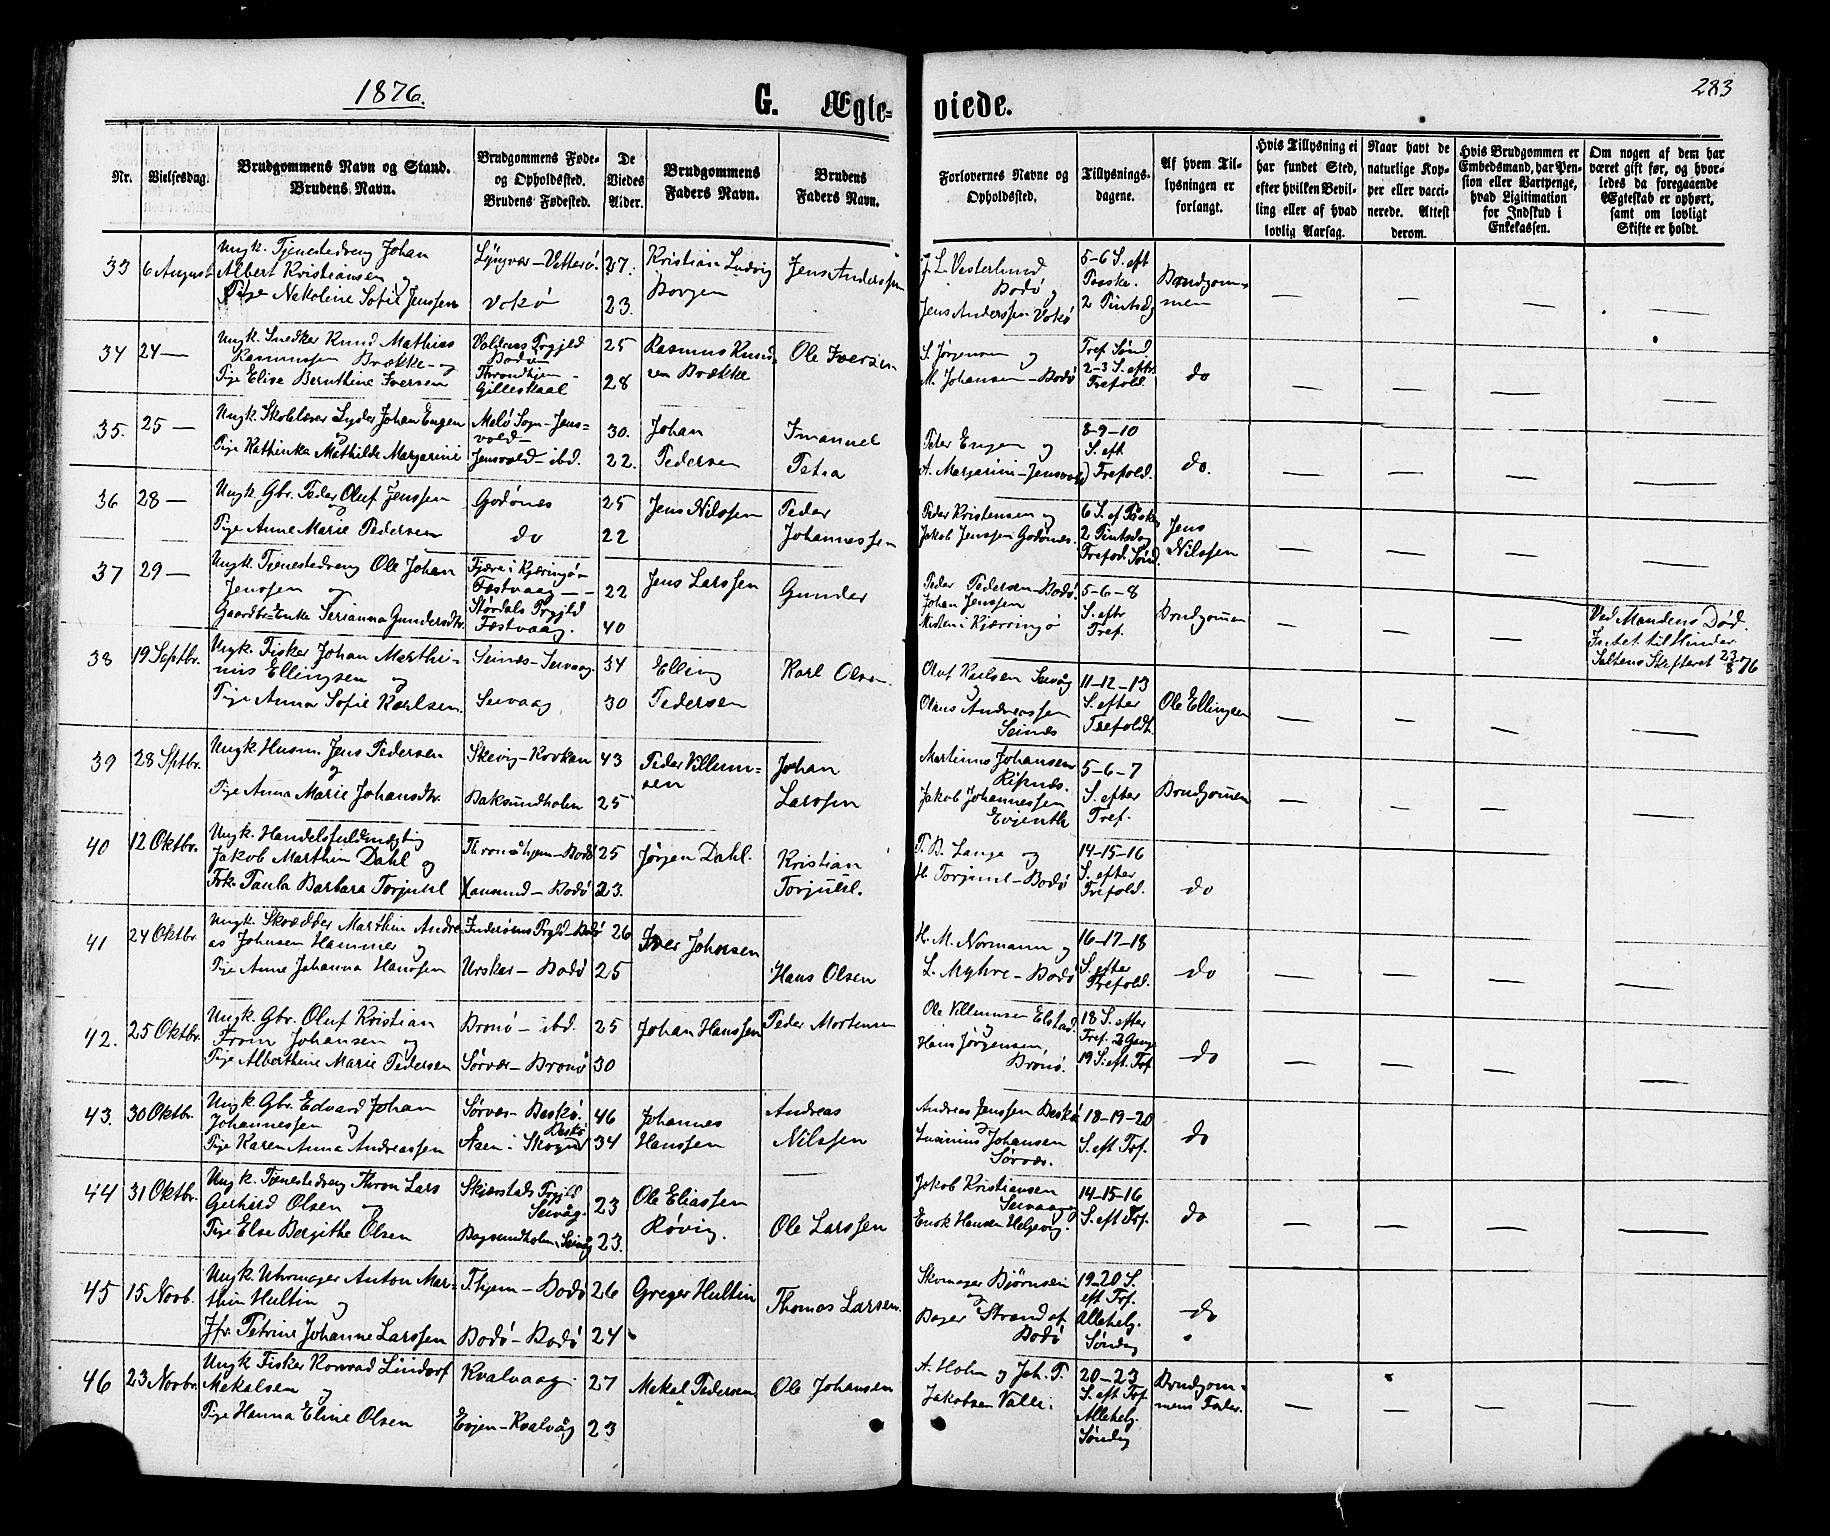 1876.
G. Ægte-
viede.
283
Nr.
Vielsesdag.
Brudgommens Navn og Stand.
Brudens Navn.
Brudgommens Føde-
og Opholdssted.
Brudens Fødested.
De
Viedes
Alder.
Brudgommens
Faders Navn.
Brudens
Faders Navn.
Forlovernes Navne og
Opholdssted.
Tillysnings-
dagene.
Af hvem Til-
lysningen er
forlangt.
Hvis Tillysning ei
har fundet Sted,
efter hvilken Bevil-
ling eller af hvad
lovlig Aarsag.
Naar havt de
naturlige Kop-
per eller vacci-
nerede. Attest
derom.
Hvis Brudgommen er
Embedsmand, har Pen-
sion eller Vartpenge,
hvad Ligitimation
for Indskud i
Enkekassen.
Om nogen af dem har
været gift før, og hvor-
ledes da foregaaende
Ægteskab er ophørt,
samt om lovligt
Skifte er holdt.
33
6 August
Ungk. Tjenestedreng Johan
Albert Kristiansen og
Pige Nekoline Sofie Jenssen
Lyngvær – Vetterø.
Vokø
27.
23.
Kristian Ludvig
Borgen
Jens Anderssen
J. L. Vesterlund
Bodø og
Jens Anderssen Vokø
5-6 S. eft
Paaske.
2 Pintsdg
Brudgom-
men
34
24 —
Ungk. Snedker Knud Mathias
Rasmussen Brække – og
Pige Elise Bernthine Iversen
Voldens Prgjld
Bodø –
Throndhjem –
Gilleskaal
25
28
Rasmus Knud-
sen Brække
Ole Iversen
S. Jørgensen og
M. Johansen – Bodø
Tref. Sønd.
2-3 S. eftr
Trefold.
do
35.
25 —
Ungk. Skolelærer Lyder Johan Engen
og
Pige Kathinka Mathilde Margarine
Melø Sogn – Jens-
vold –
Jensvold – ibd.
30.
22.
Johan
Pedersen
Imanuel
Petra
Peter Engen og
A. Margarine – Jensvold
8-9-10
S. eft
Trefold.
do.
36
28 —
Ungk. Gbr. Peder Oluf Jenssen
og
Pige Anne Marie Pedersen
Godønes
do
25
22
Jens Nilssen
Peder
Johannessen
Peder Kristensen og
Jakob Jenssen Godønes.
6 S. ef. Paask
2 Pintsdag
Trefod. Sønd.
Jens
Nilssen
37
29 —
Ungk. Tjenestedreng Ole Johan
Jenssen og
Gaardbr-Enke Serianna Gundersdtr.
Fjære i Kjæringø –
Festvaag –
Stördals Prgjld
Festvaag.
22
40
Jens Larssen
Gunder
Peder Pedersen – Bodø.
Johan Jenssen
i Kjæringø
5-6-8
S. eftr
Tref.
Brudgomen
Ved Mandens Død.
Intet til Hinder
Saltens Skifteret 23/8 76
38
19 Septbr.
Ungk. Fisker Johan Marthi-
nus Ellingsen og
Pige Anna Sofie Karlsen.
Seines – Seivaag
Seivaag
34
30
Elling
Pedersen
Karl Olsen
Oluf Karlsen Seivåg
og
Olaus Andreassen
Seines
11-12-13
S. efter
Trefoldt.
Ole Ellingsen
39
28 Sptbr.
Ungk. Husm. Jens Pedersen
og
Pige Anna Marie Johansdtr.
Skevig – Kovkan
Baksundholm
43
25
Peder Villum-
sen
Johan
Larssen
Martinus Johansen
Ripnes.
Jakob Johannessen
Evjenth
5-6-7
S. efter
Tref.
Brudgomen
40
12 Oktbr.
Ungk. Handelsfuldmægtig
Jakob Marthin Dahl og
Frk. Paula Barbara Torjusl.
Throndhjem – Bodø
Xansund – Bodø
25
23.
Jørgen Dahl.
Kristian
Torjusl.
P. B. Lange og
H. Torjusl – Bodø
14-15-16
S. efter
Trefold.
do
41
24 Oktbr.
Ungk. Skrædder Marthin Andre-
as Johnsen Hammer og
Pige Anne Johanna Hanssen
Inderøens Prgld – Bodø
Urskær – Bodø
26
25
Iver Johnsen
Hans Olsen
H. M. Normann og
L. Myhre – Bodø
16-17-18
S. efter
Trefold.
do
42.
25 Oktbr.
Ungk. Gbr. Oluf Kristian
From Johansen og
Pige Alberthine Marie Pedersen
Bronø – ibd.
Sørvær – Bronø
25
30
Johan Hanssen
Peder Mortensen
Ole Villumsen Elstad.
og
Hans Jørgensen,
Bronø.
18 S. efter
Tref. 2 Gange
19 S. eft. Trf.
do
43.
30 Oktbr.
Ungk. Gbr. Edvard Johan
Johannessen og
Pige Karen Anna Andreassen
Sørvær – Beskø.
Beskø
Naen i Skogen
46
34
Johannes
Hanssen
Andreas
Nilssen
Andreas Jenssen Beskø
og
Johansen
Sørvær.
18-19-20
S. eft Trf.
do
44
31 Oktbr.
Ungk. Tjenestedreng Thron Lars
Gerhard Olsen og
Pige Else Bergithe Olsen
Skjærstads Prgjld
Seivåg.
Bagsundholm, Seivåg
23
23.
Ole Eliassen
Røvig.
Ole Larssen
Jakob Kristiansen
Seivaag
Enok Hansen Helgevig.
14-15-16
S. eft Trf.
do
45
15 Novb.
Ungk. Uhrmager Anton Mar-
thin Hultin og
Jfr. Petrine Johanne Larssen
T.hjem – Bodø
Bodø – Bodø
26
24
Greger Hultin
Thomas Larsen.
Skomager Bjørnsen
og
Bager Strand af
Bodø
19-20 S.
eft Trf.
Allehelg.
Søndag
do
46
23 Novbr.
Ungk. Fisker Konrad Lindorf
Mekalsen og
Pige Hanna Eline Olsen
Kvalvaag
Evjen – Kvalvåg
27
23
Mekal Pedersen
Ole Johansen
A. Holm og Joh. P.
Jakobsen Valle.
20-23
S. eft Trf.
Allehelg.
Søndag
Brudgom-
mens Fader.